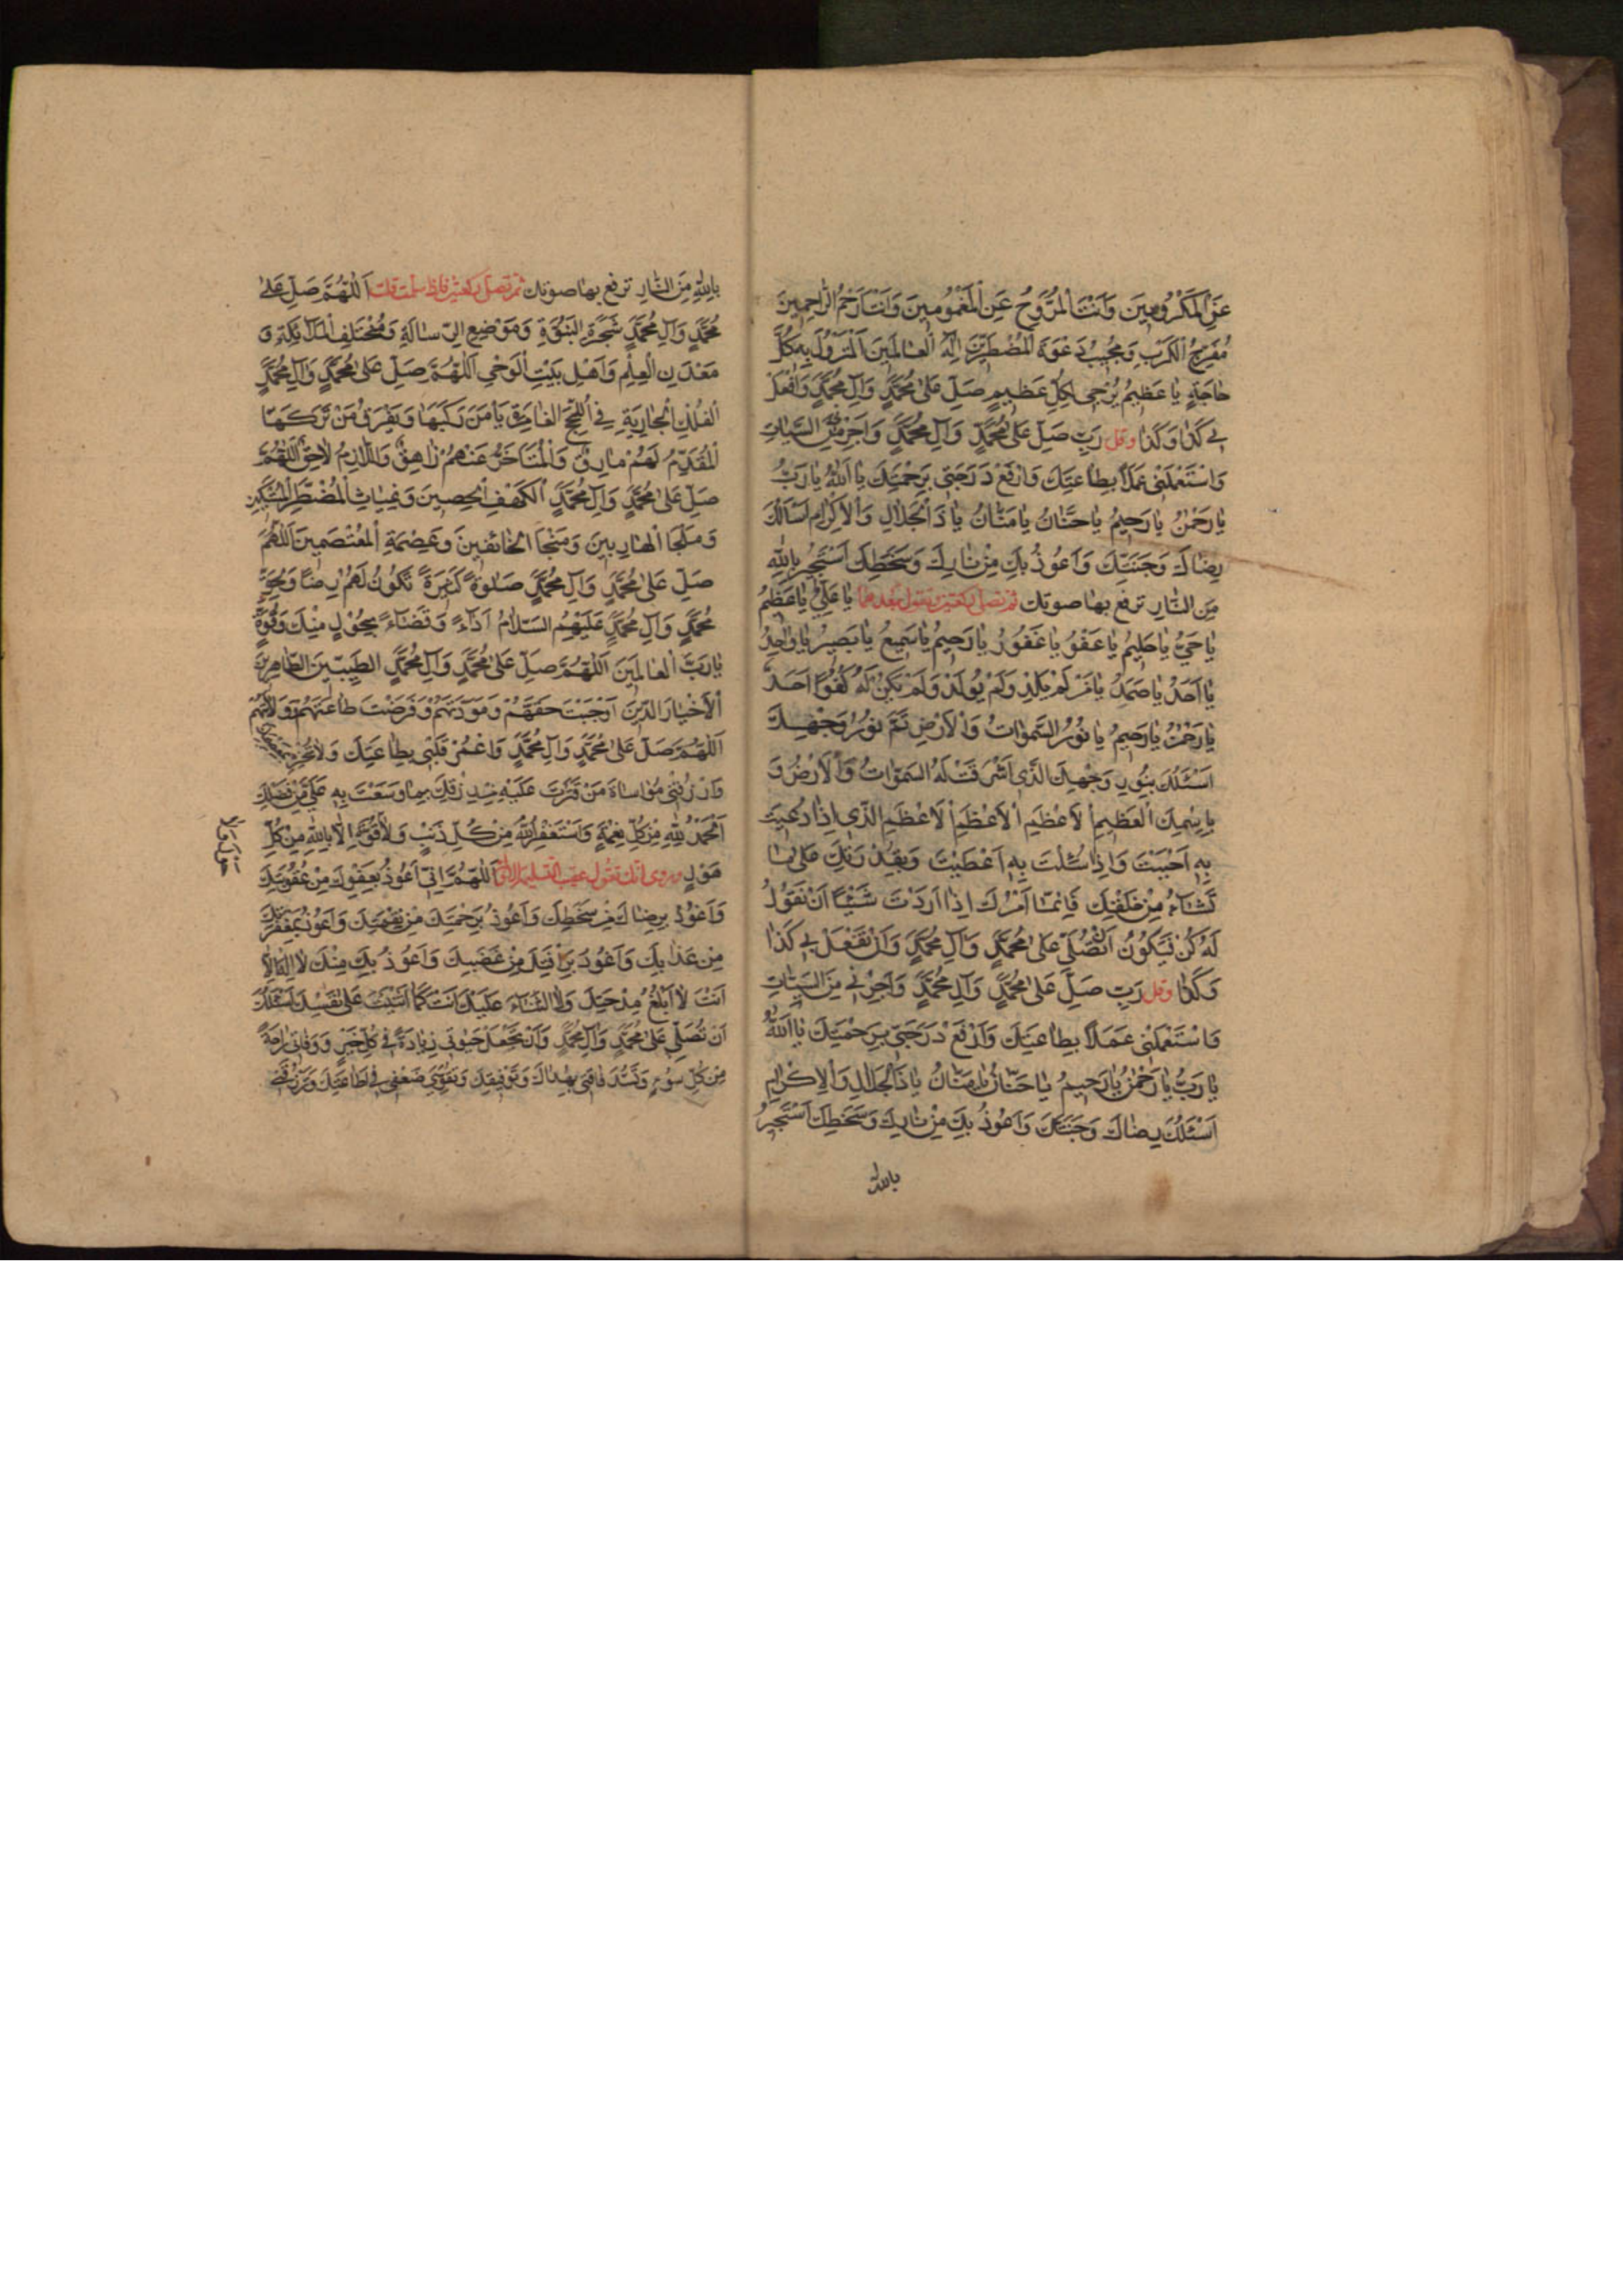 عَنِ الْمَكْرُوبِينَ وَاَنْتَ الْمُرَوِّحُ عَنِ الْمَغْمُومِينَ وَاَنْتَ اَرْحَمُ الرَّاحِمِينَ
مُفَرِّجُ الْكَرْبِ وَمُجِيبُ دَعْوَةِ الْمُضْطَرِّينَ اِلٰهُ الْعٰالَمِينَ الْمَنْزُولُ بِهِ كُلُّ
حٰاجَةٍ يٰا عَظِيمُ يُرْجٰى لِكُلِّ عَظِيمٍ صَلِّ عَلىٰ مُحَمَّدٍ وَآلِ مُحَمَّدٍ وَافْعَلْ
بِي كَذٰا وَكَذٰا وقل رَبِّ صَلِّ عَلىٰ مُحَمَّدٍ وَآلِ مُحَمَّدٍ وَاَجِرْنِي مِنَ السَّيِّئٰاتِ
وَاسْتَعْمِلْنِي عَمَلاً بِطٰاعَتِكَ وَارْفَعْ دَرَجَتِي بِرَحْمَتِكَ يٰا اَللّٰهُ يٰا رَبُّ
يٰا رَحْمٰنُ يٰا رَحِيمُ يٰا حَنَّانُ يٰا مَنَّانُ يٰا ذَا الْجَلٰالِ وَالْاِكْرٰامِ اَسْاَلُكَ
رِضٰاكَ وَجَنَّتَكَ وَاَعُوذُ بِكَ مِنْ نٰارِكَ وَسَخَطِكَ اَسْتَجِيرُ بِاللّٰهِ
مِنَ النّٰارِ ترفع بها صوتك ثم تصلى ركعتين وتقول بعدهما يٰا عَلِيُّ يٰا عَظِيمُ
يٰا حَيُّ يٰا حَلِيمُ يٰا عَفُوُّ يٰا غَفُورُ يٰا رَحِيمُ يٰا سَمِيعُ يٰا بَصِيرُ يٰا وٰاحِدُ
يٰا اَحَدُ يٰا صَمَدُ يٰا مَنْ لَمْ يَلِدْ وَلَمْ يُولَدْ وَلَمْ يَكُنْ لَهُ كُفُوًا اَحَدٌ
يٰا رَحْمٰنُ يٰا رَحِيمُ يٰا نُورَ السَّمٰوٰاتِ وَالْاَرْضِ تَمَّ نُورُ وَجْهِكَ
اَسْئَلُكَ بِنُورِ وَجْهِكَ الَّذِي اَشْرَقَتْ لَهُ السَّمٰوٰاتُ وَالْاَرْضُ وَ
بِاِسْمِكَ الْعَظِيمِ الْاَعْظَمِ الْاَعْظَمِ الْاَعْظَمِ الَّذِي اِذٰا دُعِيتَ
بِهِ اَجَبْتَ وَاِذٰا سُئِلْتَ بِهِ اَعْطَيْتَ وَبِقُدْرَتِكَ عَلىٰ مٰا
تَشٰاءُ مِنْ خَلْقِكَ فَاِنَّمٰا اَمْرُكَ اِذٰا اَرَدْتَ شَيْئًا اَنْ تَقُولَ
لَهُ كُنْ فَيَكُونُ اَنْ تُصَلِّيَ عَلىٰ مُحَمَّدٍ وَآلِ مُحَمَّدٍ وَاَنْ تَفْعَلَ بِي كَذٰا
وَكَذٰا وقل رَبِّ صَلِّ عَلىٰ مُحَمَّدٍ وَآلِ مُحَمَّدٍ وَاَجِرْنِي مِنَ السَّيِّئٰاتِ
وَاسْتَعْمِلْنِي عَمَلاً بِطٰاعَتِكَ وَارْفَعْ دَرَجَتِي بِرَحْمَتِكَ يٰا اَللّٰهُ
يٰا رَبُّ يٰا رَحْمٰنُ يٰا رَحِيمُ يٰا حَنّٰانُ يٰا مَنّٰانُ يٰا ذَا الْجَلٰالِ وَالْاِكْرٰامِ
اَسْئَلُكَ رِضٰاكَ وَجَنَّتَكَ وَاَعُوذُ بِكَ مِنْ نٰارِكَ وَسَخَطِكَ اَسْتَجِيرُ
بالله
بِاللّٰهِ مِنَ النّٰارِ ترفع بها صوتك ثم تصلى ركعتين فاذا سلمت قلت اَللّٰهُمَّ صَلِّ عَلىٰ
مُحَمَّدٍ وَآلِ مُحَمَّدٍ شَجَرَةِ النُّبُوَّةِ وَمَوْضِعِ الرِّسٰالَةِ وَمُخْتَلَفِ الْمَلٰائِكَةِ وَ
مَعْدَنِ الْعِلْمِ وَاَهْلِ بَيْتِ الْوَحْيِ اَللّٰهُمَّ صَلِّ عَلىٰ مُحَمَّدٍ وَآلِ مُحَمَّدٍ
الْفُلْكِ الْجٰارِيَةِ فِي اللُّجَجِ الْغٰامِرَةِ يَاْمَنُ مَنْ رَكِبَهٰا وَيَغْرَقُ مَنْ تَرَكَهٰا
الْمُتَقَدِّمُ لَهُمْ مٰارِقٌ وَالْمُتَاَخِّرُ عَنْهُمْ زٰاهِقٌ وَاللّٰازِمُ لَهُمْ لٰاحِقٌ اَللّٰهُمَّ
صَلِّ عَلىٰ مُحَمَّدٍ وَآلِ مُحَمَّدٍ الْكَهْفِ الْحَصِينِ وَغِيٰاثِ الْمُضْطَرِّ الْمُسْتَكِينِ
وَمَلْجَاِ الْهٰارِبِينَ وَمَنْجَا الْخٰائِفِينَ وَعِصْمَةِ الْمُعْتَصِمِينَ اَللّٰهُمَّ
صَلِّ عَلىٰ مُحَمَّدٍ وَآلِ مُحَمَّدٍ صَلٰوةً كَثِيرَةً تَكُونُ لَهُمْ رِضًا وَلِحَقِّ
مُحَمَّدٍ وَآلِ مُحَمَّدٍ عَلَيْهِمُ السَّلٰامُ اَدٰاءً وَقَضٰاءً بِحَوْلٍ مِنْكَ وَقُوَّةٍ
يٰا رَبَّ الْعٰالَمِينَ اَللّٰهُمَّ صَلِّ عَلىٰ مُحَمَّدٍ وَآلِ مُحَمَّدٍ الطَّيِّبِينَ الطّٰاهِرِينَ
الْاَخْيٰارِ الَّذِينَ اَوْجَبْتَ حَقَّهُمْ وَمَوَدَّتَهُمْ وَفَرَضْتَ طٰاعَتَهُمْ وَوِلٰايَتَهُمْ
اَللّٰهُمَّ صَلِّ عَلىٰ مُحَمَّدٍ وَآلِ مُحَمَّدٍ وَاعْمُرْ قَلْبِي بِطٰاعَتِكَ وَلٰا تُخْزِنِي بِمَعْصِيَتِكَ
وَارْزُقْنِي مُوٰاسٰاةَ مَنْ قَتَّرْتَ عَلَيْهِ مِنْ رِزْقِكَ بِمٰا وَسَّعْتَ بِهِ عَلَيَّ مِنْ فَضْلِكَ
اَلْحَمْدُ لِلّٰهِ مِنْ كُلِّ نِعْمَةٍ وَاَسْتَغْفِرُ اللّٰهَ مِنْ كُلِّ ذَنْبٍ وَلٰا قُوَّةَ اِلّٰا بِاللّٰهِ مِنْ كُلِّ
هَوْلٍ وروى انك تقول عقيب التسليمة الاولى اَللّٰهُمَّ اِنِّي اَعُوذُ بِعَفْوِكَ مِنْ عُقُوبَتِكَ
وَاَعُوذُ بِرِضٰاكَ مِنْ سَخَطِكَ وَاَعُوذُ بِرَحْمَتِكَ مِنْ نِقْمَتِكَ وَاَعُوذُ بِمَغْفِرَتِكَ
مِنْ عَذٰابِكَ وَاَعُوذُ بِرَاْفَتِكَ مِنْ غَضَبِكَ وَاَعُوذُ بِكَ مِنْكَ لٰا اِلٰهَ اِلّٰا
اَنْتَ لٰا اَبْلُغُ مِدْحَتَكَ وَلَا الثَّنٰاءَ عَلَيْكَ اَنْتَ كَمٰا اَثْنَيْتَ عَلىٰ نَفْسِكَ اَسْئَلُكَ
اَنْ تُصَلِّيَ عَلىٰ مُحَمَّدٍ وَآلِ مُحَمَّدٍ وَاَنْ تَجْعَلَ حَيٰوتِي زِيٰادَةً فِي كُلِّ خَيْرٍ وَوَفٰاتِي رٰاحَةً
مِنْ كُلِّ سُوءٍ وَتَسُدَّ فٰاقَتِي بِهُدٰاكَ وَتَوْفِيقِكَ وَتُقَوِّيَ ضَعْفِي فِي طٰاعَتِكَ وَتَرْزُقَنِي